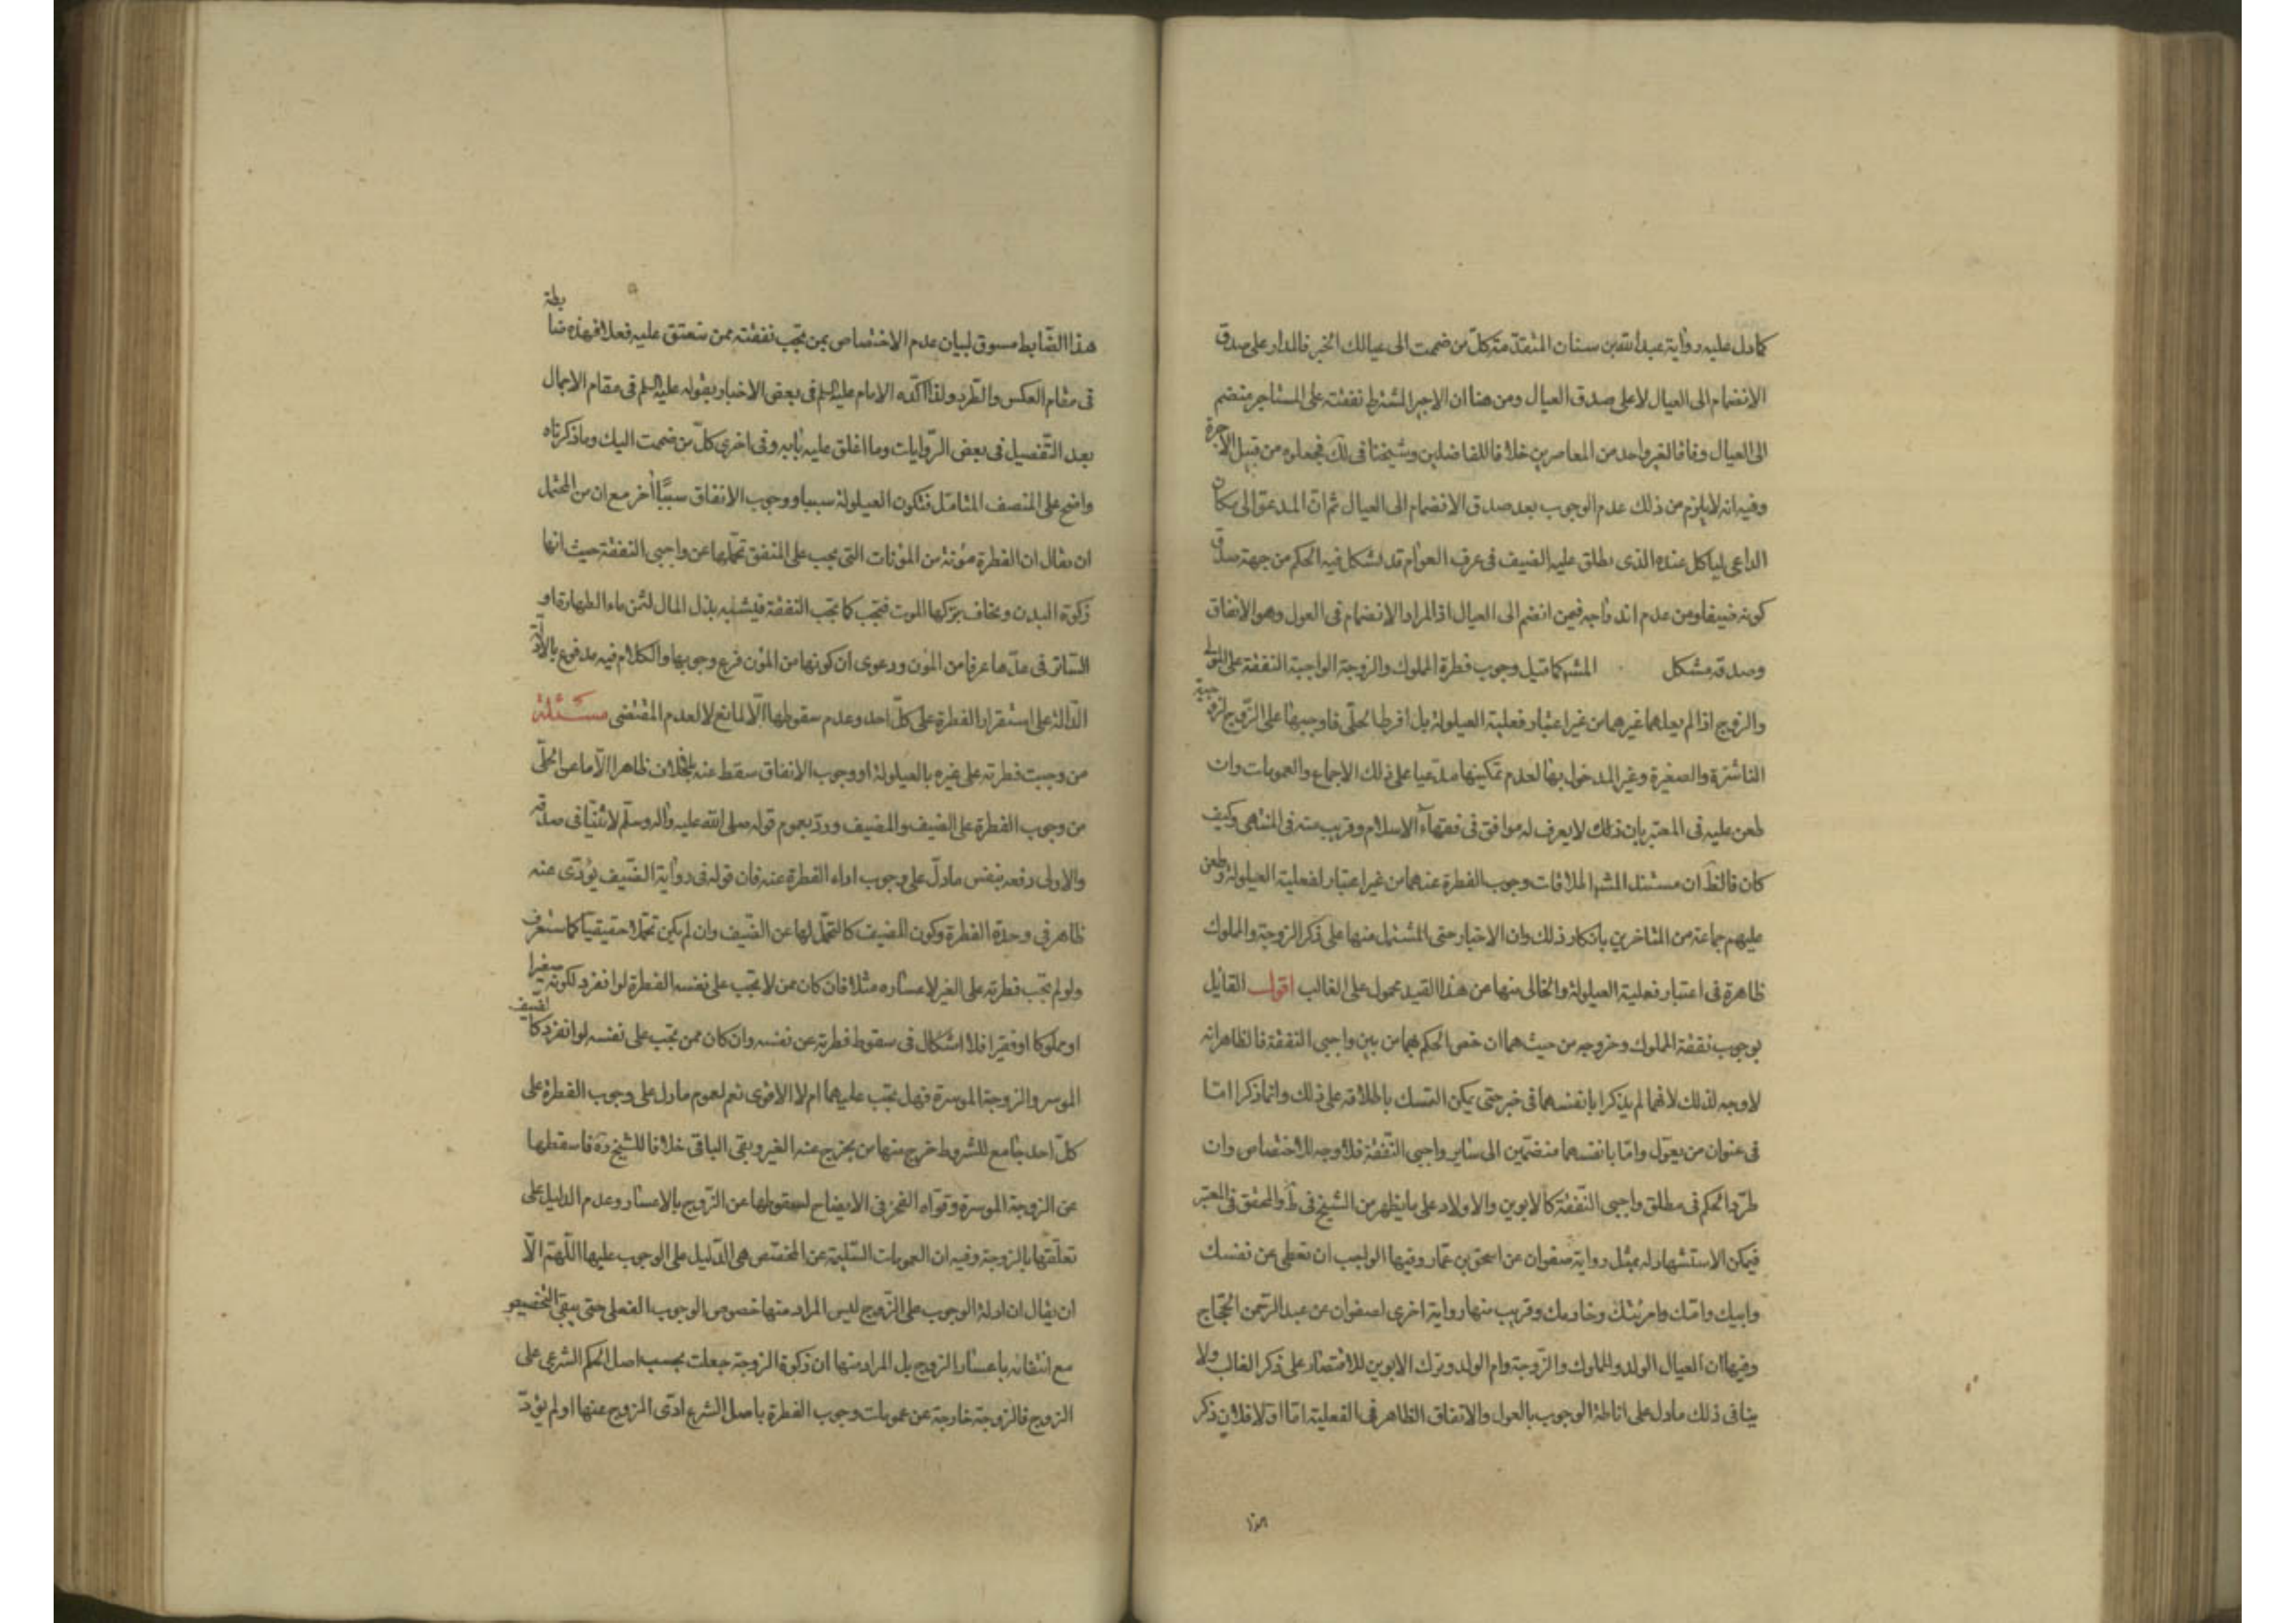 كما دل عليه رواية عبد الله بن سنان المتقدّمة كلّ من ضممت الى عيالك الخبر فالمدار على صدق
الانضمام الى العيال لا على صدق العيال ومن هنا ان الاجير المشترط نفقته على المستاجر منضم
الى العيال وفاقا لغير واحد من المعاصرين خلافا للفاضلين وشيخنا في لك فجعلوه من قبيل الاجرة
وفيه انه لا يلزم من ذلك عدم الوجوب بعد صدق الانضمام الى العيال ثم ان المدعو الى مكان
الداعى لياكل عنده الذى يطلق عليه الضيف في عرف العوام قد يشكل فيه الحكم من جهة صدق
كونه ضيفا ومن عدم اندراجه فيمن انضم الى العيال اذ المراد الانضمام في العول وهو الانفاق
وصدقه مشكل المشهور كما قيل وجوب فطرة المملوك والزوجة الواجبة النفقة على المولى
والزوج اذا لم يعلهما غيرهما من غير اعتبار فعلية العيلولة بل افرط الحلّى فاوجبها على الزّوج لزوجية
الناشزة والصغيرة وغير المدخول بها لعدم تمكينها مدّعيا على ذلك الاجماع والعمومات وان
طعن عليه في المعتبر بان ذلك لا يعرف له موافق في فقهآء الاسلام وقريب منه في المنتهى وكيف
كان فالظ ان مستند المشهور اطلاقات وجوب الفطرة عنهما من غير اعتبار لفعلية العيلولة وطعن
عليهم جماعة من المتاخرين بانكار ذلك وان الاخبار حتى المشتمل منها على ذكر الزوجة والمملوك
ظاهرة في اعتبار فعلية العيلولة والخالى منها من هذا القيد محمول على الغالب اقول القايل
بوجوب نفقة المملوك وخروجه من حيث هما ان خص الحكم بهما من بين واجبى النفقة فالظاهر انه
لا وجه لذلك لانهما لم يذكرا بانفسهما في خبر حتى يمكن التمسك باطلاقه على ذلك وانما ذكرا امّا
في عنوان من يعوّل وامّا بانفسهما منضمّين الى ساير واجبى النّفقة فلا وجه للاختصاص وان
طرّد الحكم في مطلق واجبى النّفقة كالابوين والاولاد على ما يظهر من الشيخ في ط والمحقق في المعتبر
فيمكن الاستشهاد له بمثل رواية صفوان عن اسحق بن عمّار وفيها الواجب ان تعطى عن نفسك
وابيك وامّك وامرئتك وخادمك وقريب منها رواية اخرى لصفوان عن عبد الرّحمن الحجّاج
وفيها ان العيال الولد والمملوك والزّوجة وام الولد وترك الابوين للاقتصار على ذكر الغالب ولا
ينافى ذلك ما دل على اناطة الوجوب بالعول والانفاق الظاهر في الفعلية امّا اوّلا فلان ذكر
هذا الضّابط مسوق لبيان عدم الاختصاص بمن تجب نفقته ممن تنفق عليه فعلا فهذه ضابطة
في مقام العكس والطّرد ولذا اكدّه الامام عليه السلم في بعض الاخبار بقوله عليه السلم في مقام الاجمال
بعد التّفصيل في بعض الرّوايات وما اغلق عليه بابه وفى اخرى كلّ من ضممت اليك وما ذكرناه
واضح على المنصف المتامّل فتكون العيلولة سببا ووجوب الانفاق سببًا آخر مع ان من المحتمل
ان يقال ان الفطرة مؤنة من المؤنات التى يجب على المنفق تحمّلها عن واجبى النفقة حيث انها
زكوة البدن ويخاف بتركها الموت فتجب كما تجب النفقة فيشبه بذل المال لثمن ماء الطهارة او
السّاتر في عدّها عرفا من المؤن ودعوى ان كونها من المؤن فرع وجوبها والكلام فيه مدفوع بالادلّة
الدّالة على استقرار الفطرة على كلّ احد وعدم سقوطها الّا لمانع لا لعدم المقتضى مسئلة
من وجبت فطرته على غيره بالعيلولة او وجوب الانفاق سقط عنه بلا خلاف ظاهرا الّا ما عن الحلّى
من وجوب الفطرة على الضيف والمضيف وردّ بعموم قوله صلى الله عليه وآله وسلّم لا ثنيا في صدقة
والاولى دفعه بنفس ما دلّ على وجوب اداء الفطرة عنه فان قوله في رواية الضّيف يؤدّى عنه
ظاهر في وحدة الفطرة وكون المضيف كالمتحمّل لها عن الضّيف وان لم يكن تحمّلا حقيقيّا كما ستعرف
ولو لم تجب فطرته على الغير لاعساره مثلا فان كان ممن لا تجب على نفسه الفطرة لو انفرد لكونه صغيرا
او مملوكا او فقيرا فلا اشكال في سقوط فطرته عن نفسه وان كان ممن تجب على نفسه لو انفرد كالضيف
الموسر والزوجة الموسرة فهل تجب عليهما ام لا الاقوى نعم لعموم ما دل على وجوب الفطرة على
كلّ احد جامع للشروط خرج منها من يخرج عنه الغير وبقى الباقى خلافا للشيخ ره فاسقطها
عن الزوجة الموسرة وقوّاه الفخر في الايضاح لسقوطها عن الزّوج بالاعسار وعدم الدليل على
تعلّقها بالزوجة وفيه ان العمومات السّليمة عن المخصّص هى الدّليل على الوجوب عليها اللّهمّ الّا
ان يقال ان ادلة الوجوب على الزّوج ليس المراد منها خصوص الوجوب الفعلى حتى يبقى التخصيص
مع انتفائه باعسار الزوج بل المراد منها ان زكوة الزوجة جعلت بحسب اصل الحكم الشرعى على
الزوج فالزوجة خارجة عن عمومات وجوب الفطرة باصل الشرع ادّى الزوج عنها او لم يؤدّ